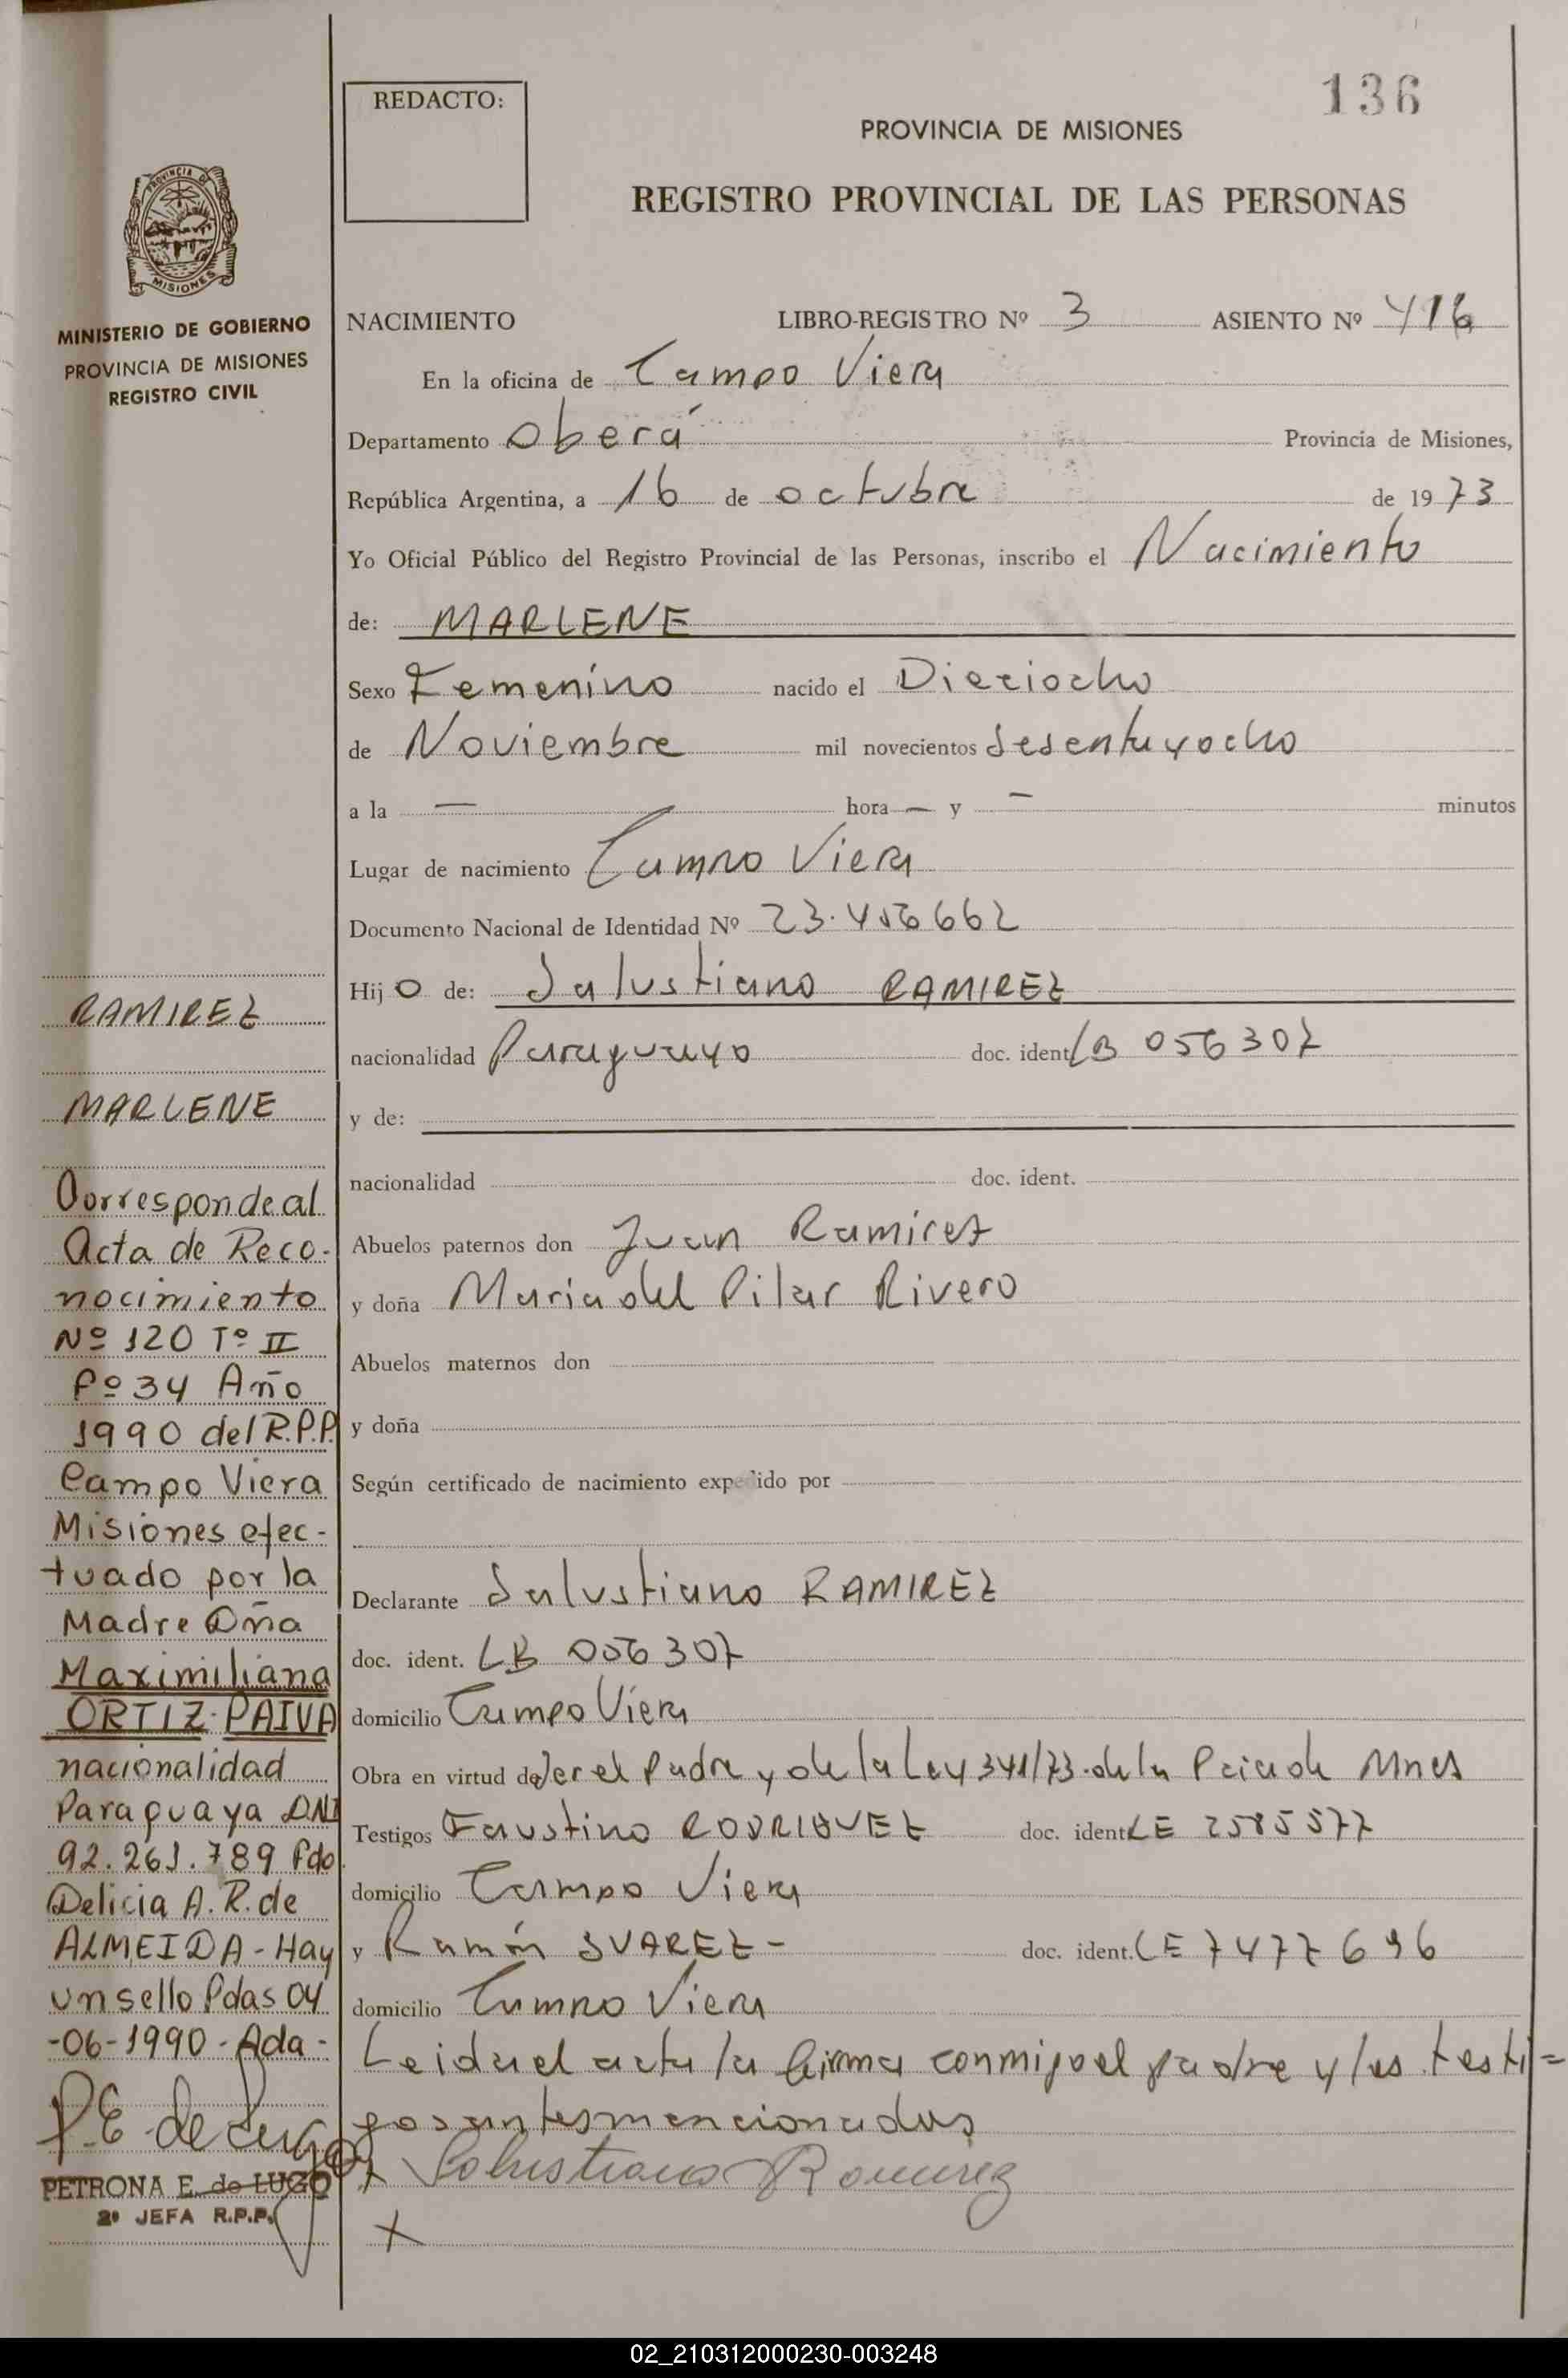 136
REDACTO:
PROVINCIA DE MISIONES
REGISTRO PROVINCIAL DE LAS PERSONAS
PROVINCIA DE
MISIONES
MINISTERIO DE GOBIERNO
PROVINCIA DE MISIONES
REGISTRO CIVIL
NACIMIENTO LIBRO-REGISTRO Nº 3 ASIENTO Nº 416
En la oficina de Campo Viera
Departamento Oberá Provincia de Misiones,
República Argentina, a 16 de octubre de 1973
Yo Oficial Público del Registro Provincial de las Personas, inscribo el Nacimiento
de: MARLENE
Sexo Femenino nacido el Dieciocho
de Noviembre mil novecientos sesentayocho
a la — hora — y — minutos
Lugar de nacimiento Campo Viera
Documento Nacional de Identidad Nº 23.456662
Hijo de: Salustiano RAMIREZ
nacionalidad Paraguayo doc. ident. LB 056307
y de:
nacionalidad doc. ident.
Abuelos paternos don Juan Ramirez
y doña Maria del Pilar Rivero
Abuelos maternos don
y doña
Según certificado de nacimiento expedido por
Declarante Salustiano RAMIREZ
doc. ident. LB 056307
domicilio Campo Viera
Obra en virtud de ser el Padre y de la Ley 341/73 de la Pcia de Mnes
Testigos Faustino RODRIGUEZ doc. ident. LE 2585577
domicilio Campo Viera
y Ramón SUAREZ - doc. ident. LE 7477696
domicilio Campo Viera
Leida el acta la firma conmigo el padre y los testi=
gos antes mencionados
x Salustiano Ramirez
x
RAMIREZ
MARLENE
Corresponde al
Acta de Reco-
nocimiento
Nº 120 Tº II
Fº 34 Año
1990 del R.P.P.
Campo Viera
Misiones efec-
tuado por la
Madre Dña
Maximiliana
ORTIZ-PAIVA
nacionalidad
Paraguaya DNI
92.261.789 Fdo.
Delicia A. R. de
ALMEIDA - Hay
un sello Pdas 04
-06-1990 - Ada -
P.E. de Lugo
PETRONA E. de LUGO
2ª JEFA R.P.P.
02_210312000230-003248